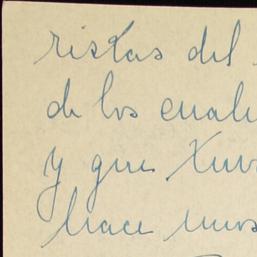 ristas del
de los cual
y que tuv
hace unos